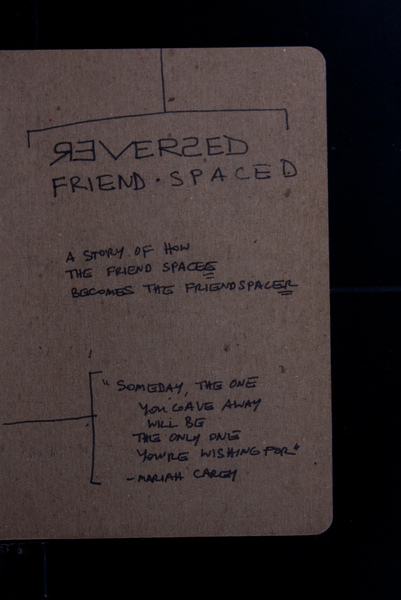 REVERSED
FRIEND·SPACED
A STORY OF HOW
THE FRIEND SPACEE
BECOMES THE FRIENDSPACER
"SOMEDAY, THE ONE
YOU GAVE AWAY
WILL BE
THE ONLY ONE
YOU'RE WISHING FOR"
-MARIAH CAREY